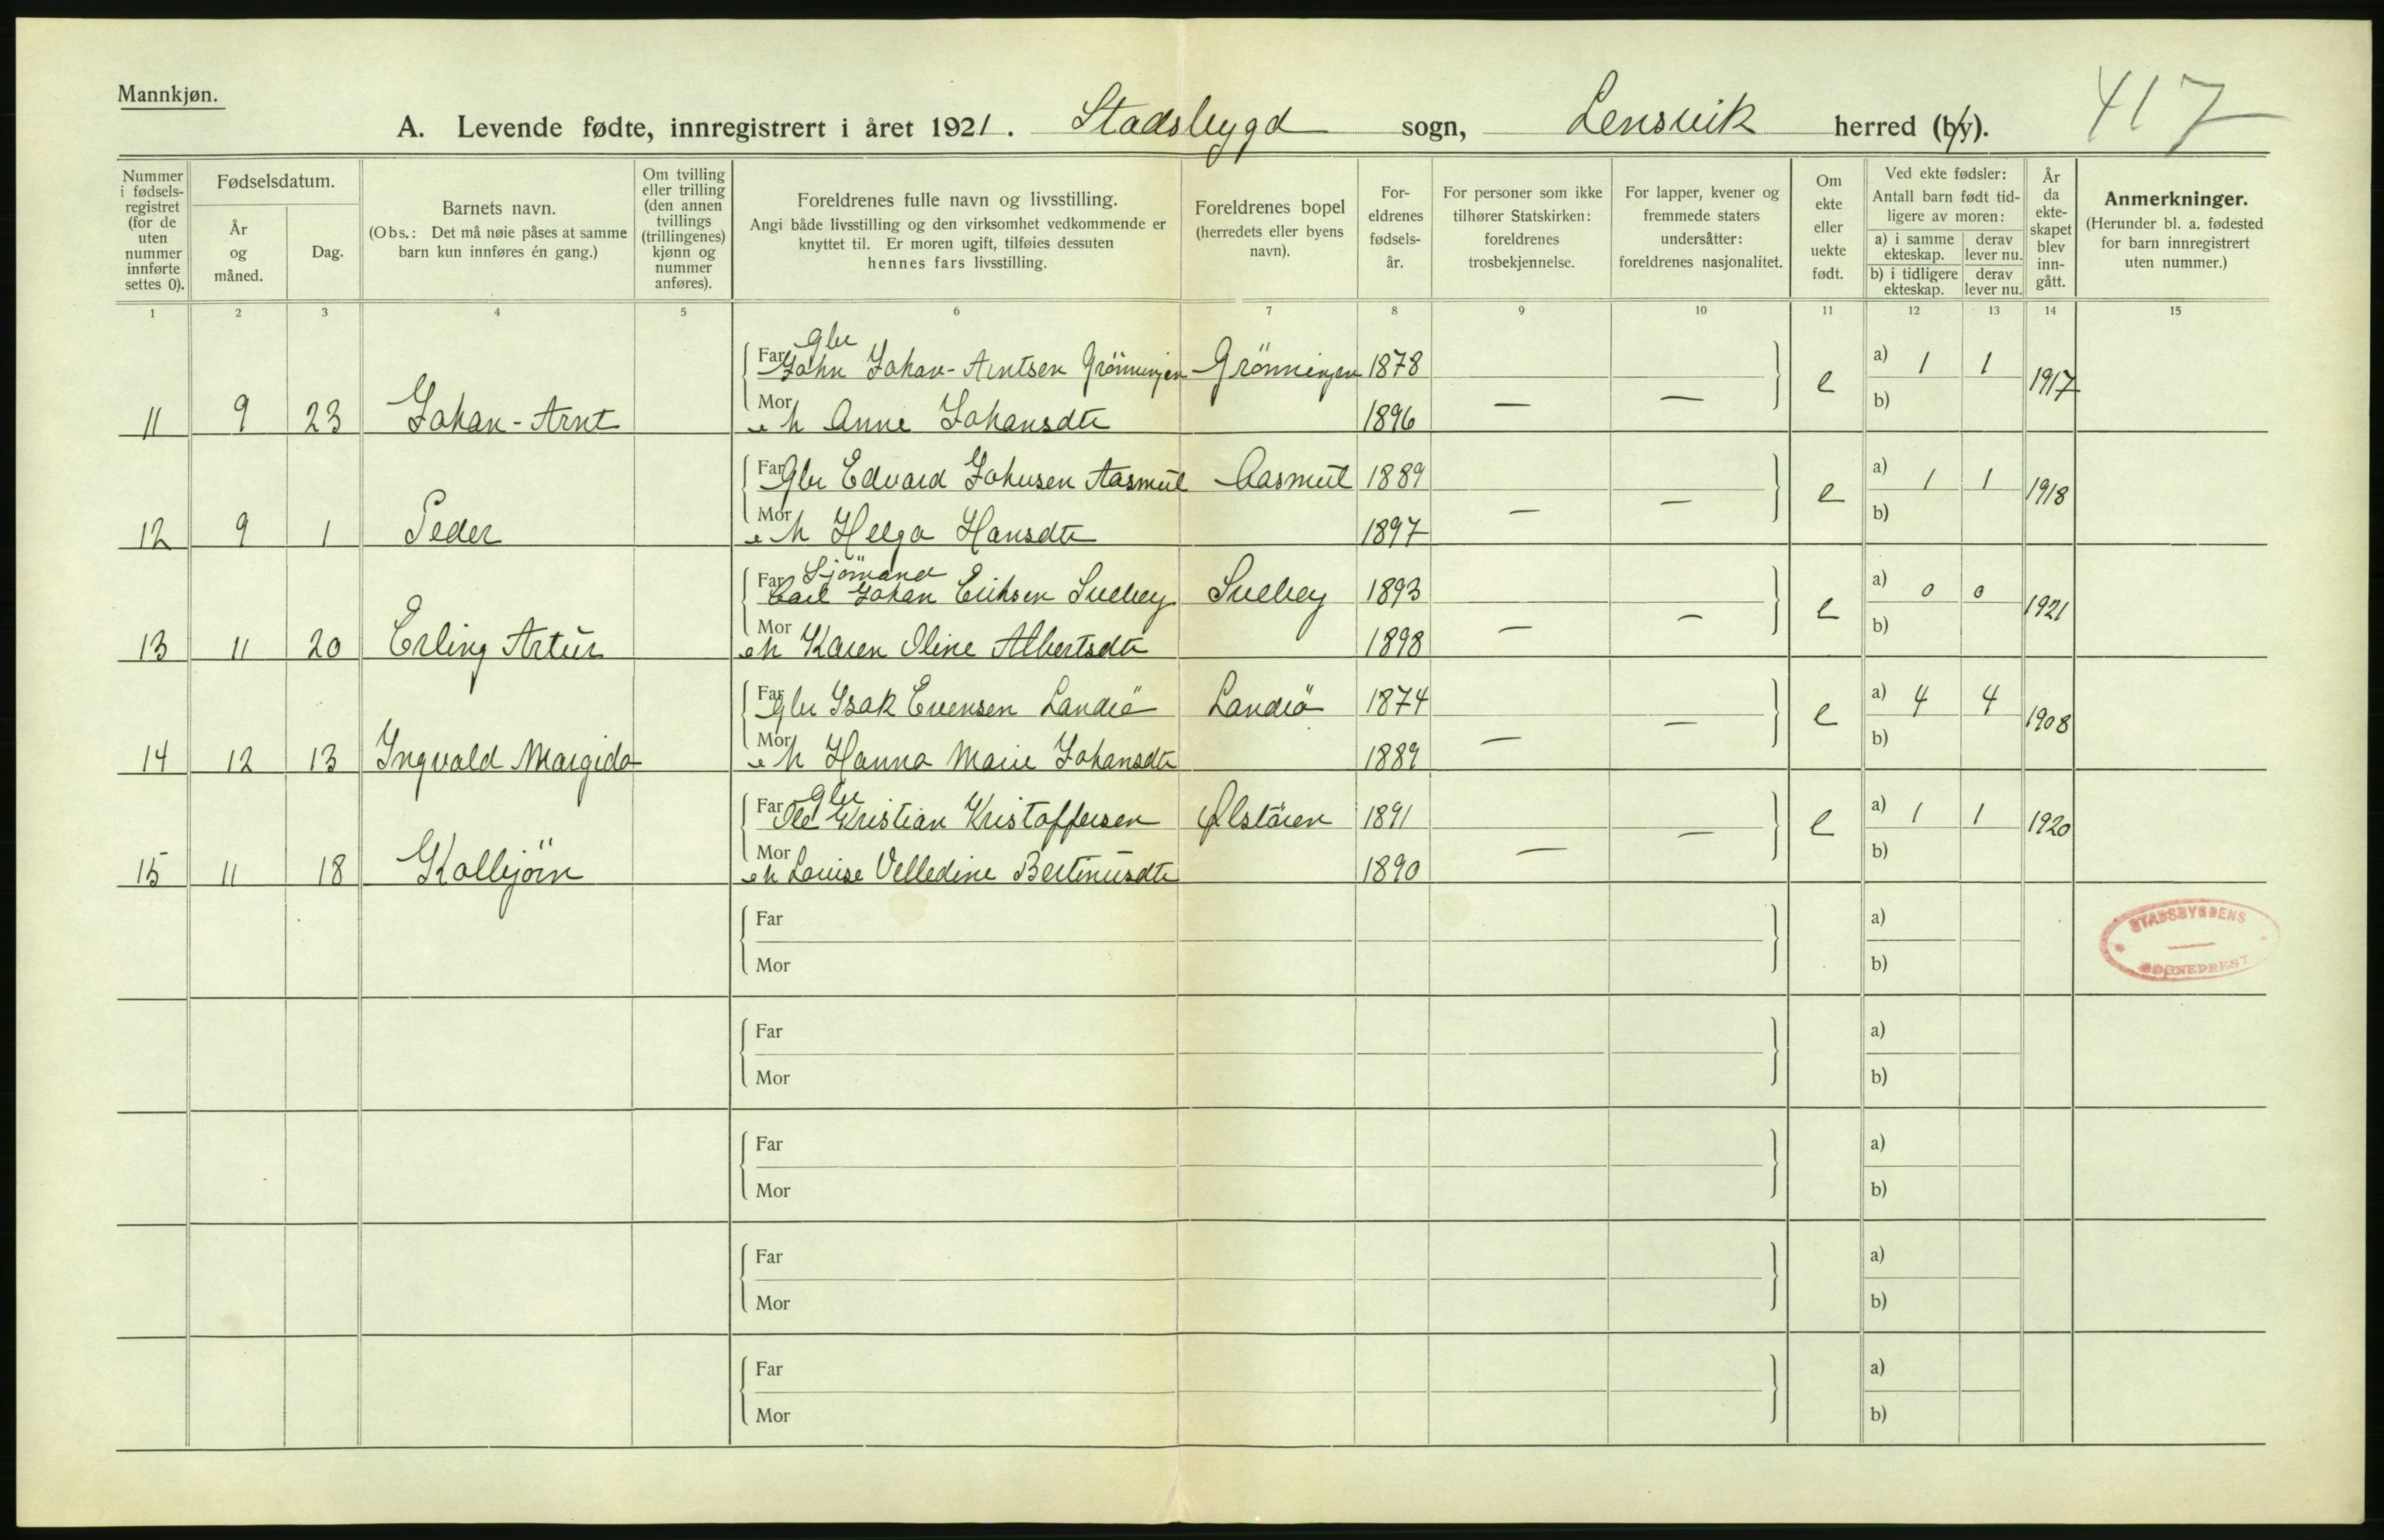 Mannkjøn.
A. Levende fødte, innregistrert i året 1921. Stadsbygd sogn, Lensvik herred (by).
417
Nummer i fødsels-registret (for de uten nummer innførte settes 0).
Fødselsdatum.
År og måned.
Dag.
Barnets navn.
(Obs.: Det må nøie påses at samme barn kun innføres én gang.)
Om tvilling eller trilling (den annen tvillings (trillingenes) kjønn og nummer anføres).
Foreldrenes fulle navn og livsstilling.
Angi både livsstilling og den virksomhet vedkommende er knyttet til. Er moren ugift, tilføies dessuten hennes fars livsstilling.
Foreldrenes bopel (herredets eller byens navn).
For-eldrenes fødsels-år.
For personer som ikke tilhører Statskirken: foreldrenes trosbekjennelse.
For lapper, kvener og fremmede staters undersåtter: foreldrenes nasjonalitet.
Om ekte eller uekte født.
Ved ekte fødsler: Antall barn født tid-ligere av moren:
a) i samme ekteskap.
derav lever nu.
b) i tidligere ekteskap.
derav lever nu.
År da ekte-skapet blev inn-gått.
Anmerkninger.
(Herunder bl. a. fødested for barn innregistrert uten nummer.)
1 2 3 4 5 6 7 8 9 10 11 12 13 14 15
Gbr
Far John Johan-Arntsen Grönningen Grönningen 1878 e a) 1 1 1917
11 9 23 Johan-Arnt Mor e h Anne Johansdtr 1896 — — b)
Far Gbr Edvard Johnsen Aasmul Aasmul 1889 e a) 1 1 1918
12 9 1 Peder Mor e h Helga Hansdtr 1897 — — b)
Sjömand
Far Carl Johan Eriksen Sveberg Sveberg 1893 e a) 0 0 1921
13 11 20 Erling Artur Mor e h Karen Oline Albertsdtr 1898 — — b)
Far Gbr Isak Evensen Landrö Landrö 1874 e a) 4 4 1908
14 12 13 Ingvald Margido Mor e h Hanna Marie Johansdtr 1889 — — b)
Gbr
Far Ole Kristian Kristoffersen Ølstören 1891 e a) 1 1 1920
15 11 18 Kolbjörn Mor e h Louise Velledine Bertinusdtr 1890 — — b)
Far a)
Mor b)
STADSBYGDENS
SOGNEPREST
Far a)
Mor b)
Far a)
Mor b)
Far a)
Mor b)
Far a)
Mor b)